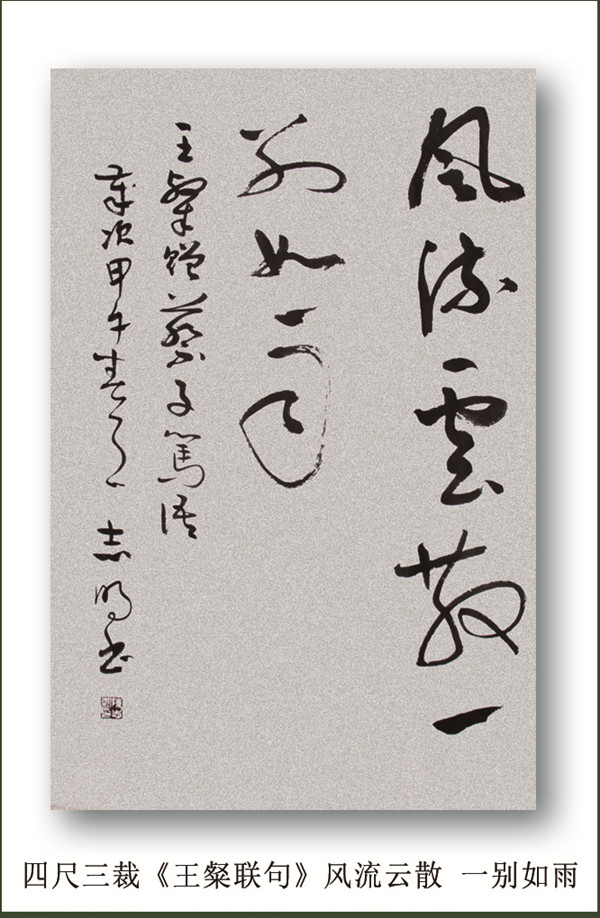 风流雲散一
别如雨
王粲赠蔡子笃语
岁次甲午春月 志明书
四尺三裁《王粲联句》风流云散 一别如雨